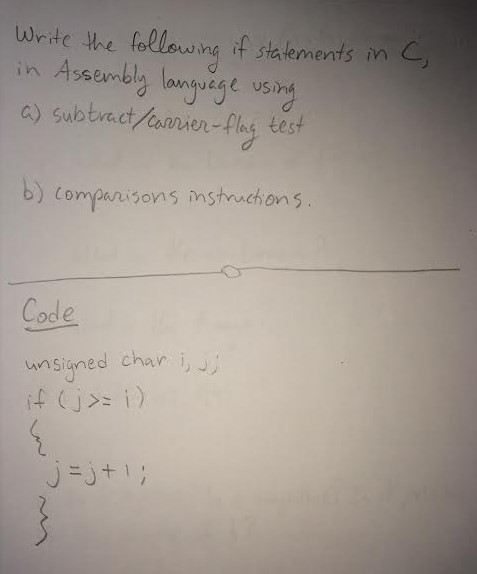 Write the following if statements in C,
in Assembly language using
a) subtract/carrier-flag test
b) comparisons instructions.
Code
unsigned char i, j;
if (j >= i)
{
j = j + 1;
}